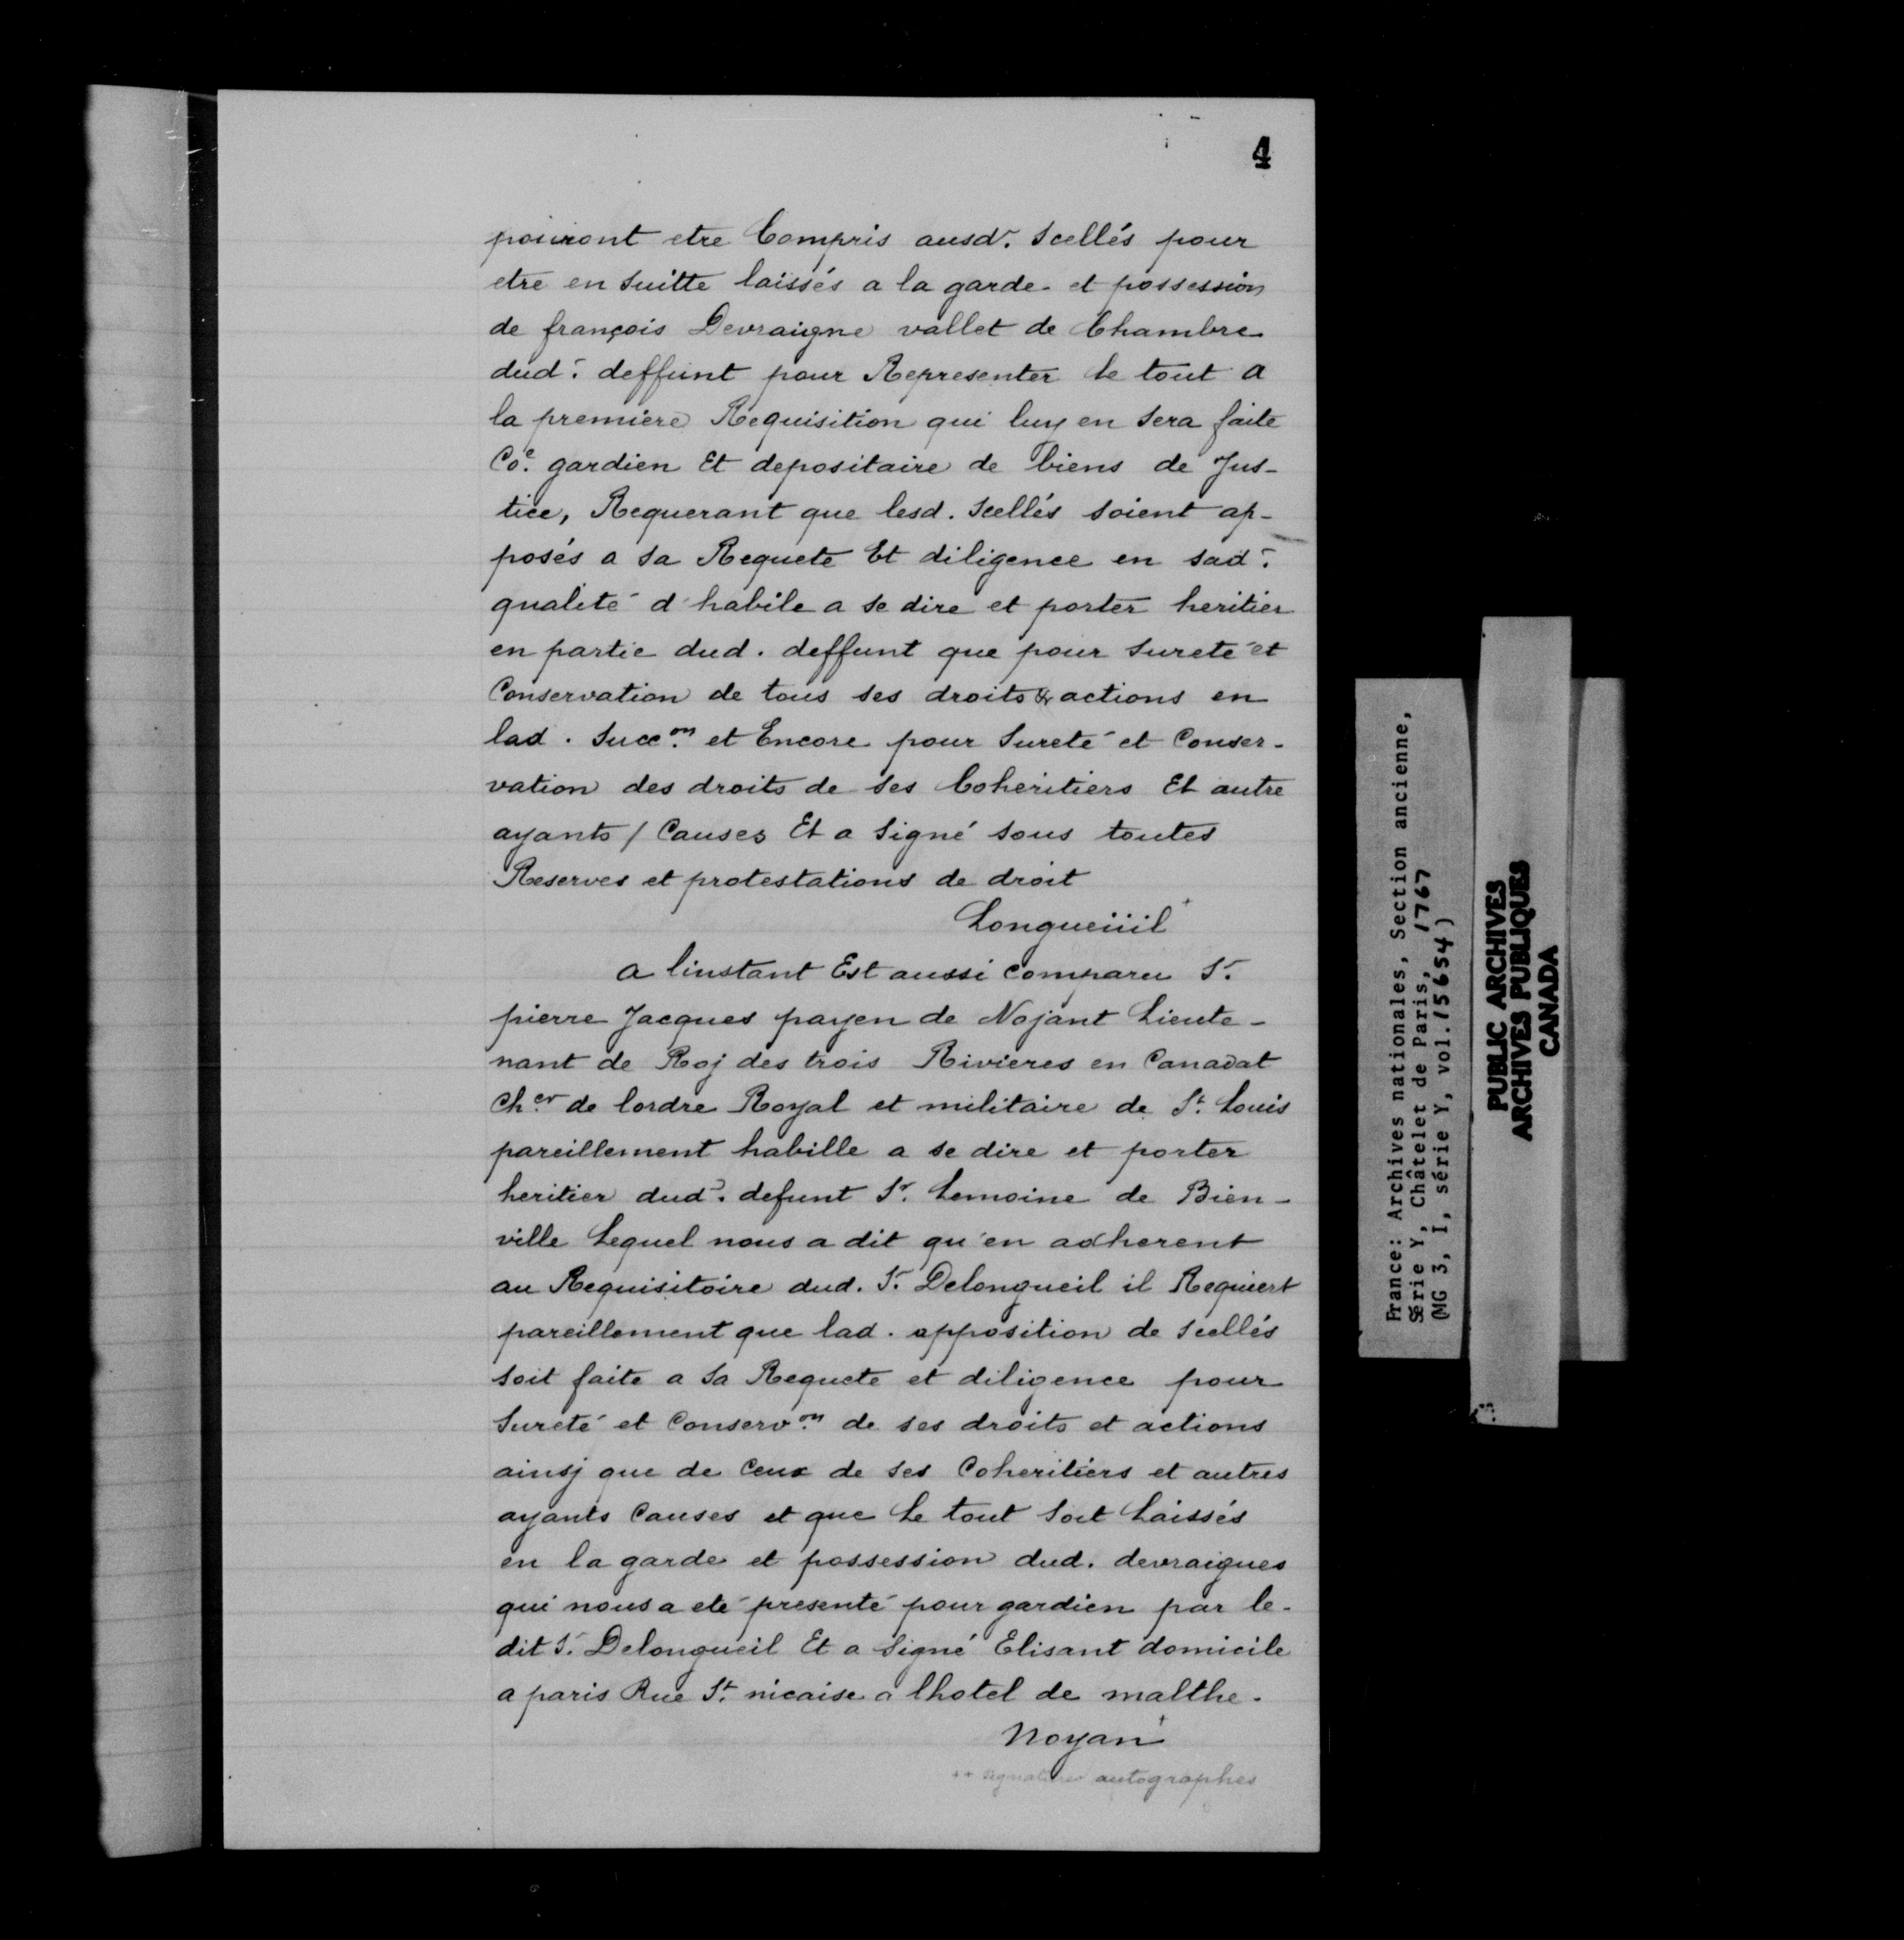 4
pouront etre Compris ausd. Scellés pour
etre en Suitte laissés a la garde et possession
de françois Devraigne vallet de Chambre
dud. deffunt pour Representer le tout a
la premiere Requisition qui luy en Sera faite
Coe. gardien Et depositaire de biens de Jus-
tice, Requerant que lesd. Scellés soient ap-
posés a Sa Requete Et diligence en sad.
qualité d'habile a se dire et porter heritier
en partie dud. deffunt que pour Sureté et
Conservation de tous ses droits & actions en
lad. Succon. et Encore pour Sureté et Conser-
vation des droits de ses Coheritiers Et autre
ayants / Causes Et a Signé sous toutes
Reserves et protestations de droit
Longueüil +
a linstant Est aussi comparu Sr.
pierre Jacques payen de Nojant Lieute-
nant de Roj des trois Rivieres en Canadat
Cher. de lordre Royal et militaire de St. Louis
pareillement habille a se dire et porter
heritier dud. defunt Sr. Lemoine de Bien-
ville Lequel nous a dit qu'en adherent
au Requisitoire dud. Sr. Delongueil il Requiert
pareillement que lad. apposition de Scellés
soit faite a Sa Requete et diligence pour
Sureté et Conservon. de ses droits et actions
ainsj que de Ceux de ses Coheritiers et autres
ayants Causes et que Le tout Soit Laissés
en la garde et possession dud. devraignes
qui nous a eté presenté pour gardien par le-
dit Sr. Delongueil Et a Signé Elisant domicile
a paris Rue St. nicaise a lhotel de malthe.
Noyan +
++ signatures autographes
France: Archives nationales, Section ancienne,
Série Y, Châtelet de Paris, 1767
(MG 3, I, série Y, vol. 15654)
PUBLIC ARCHIVES
ARCHIVES PUBLIQUES
CANADA